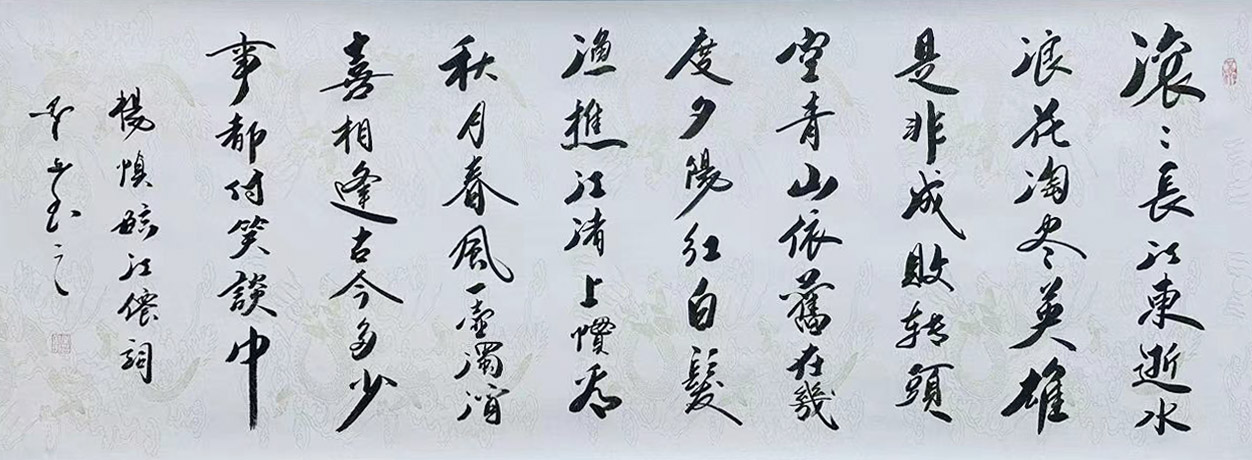 滚〻長江東逝水
浪花淘尽英雄
是非成敗转頭
空青山依舊在幾
度夕陽红白髮
渔樵江渚上慣看
秋月春風一壶濁酒
喜相逢古今多少
事都付笑談中
楊慎临江僊詞